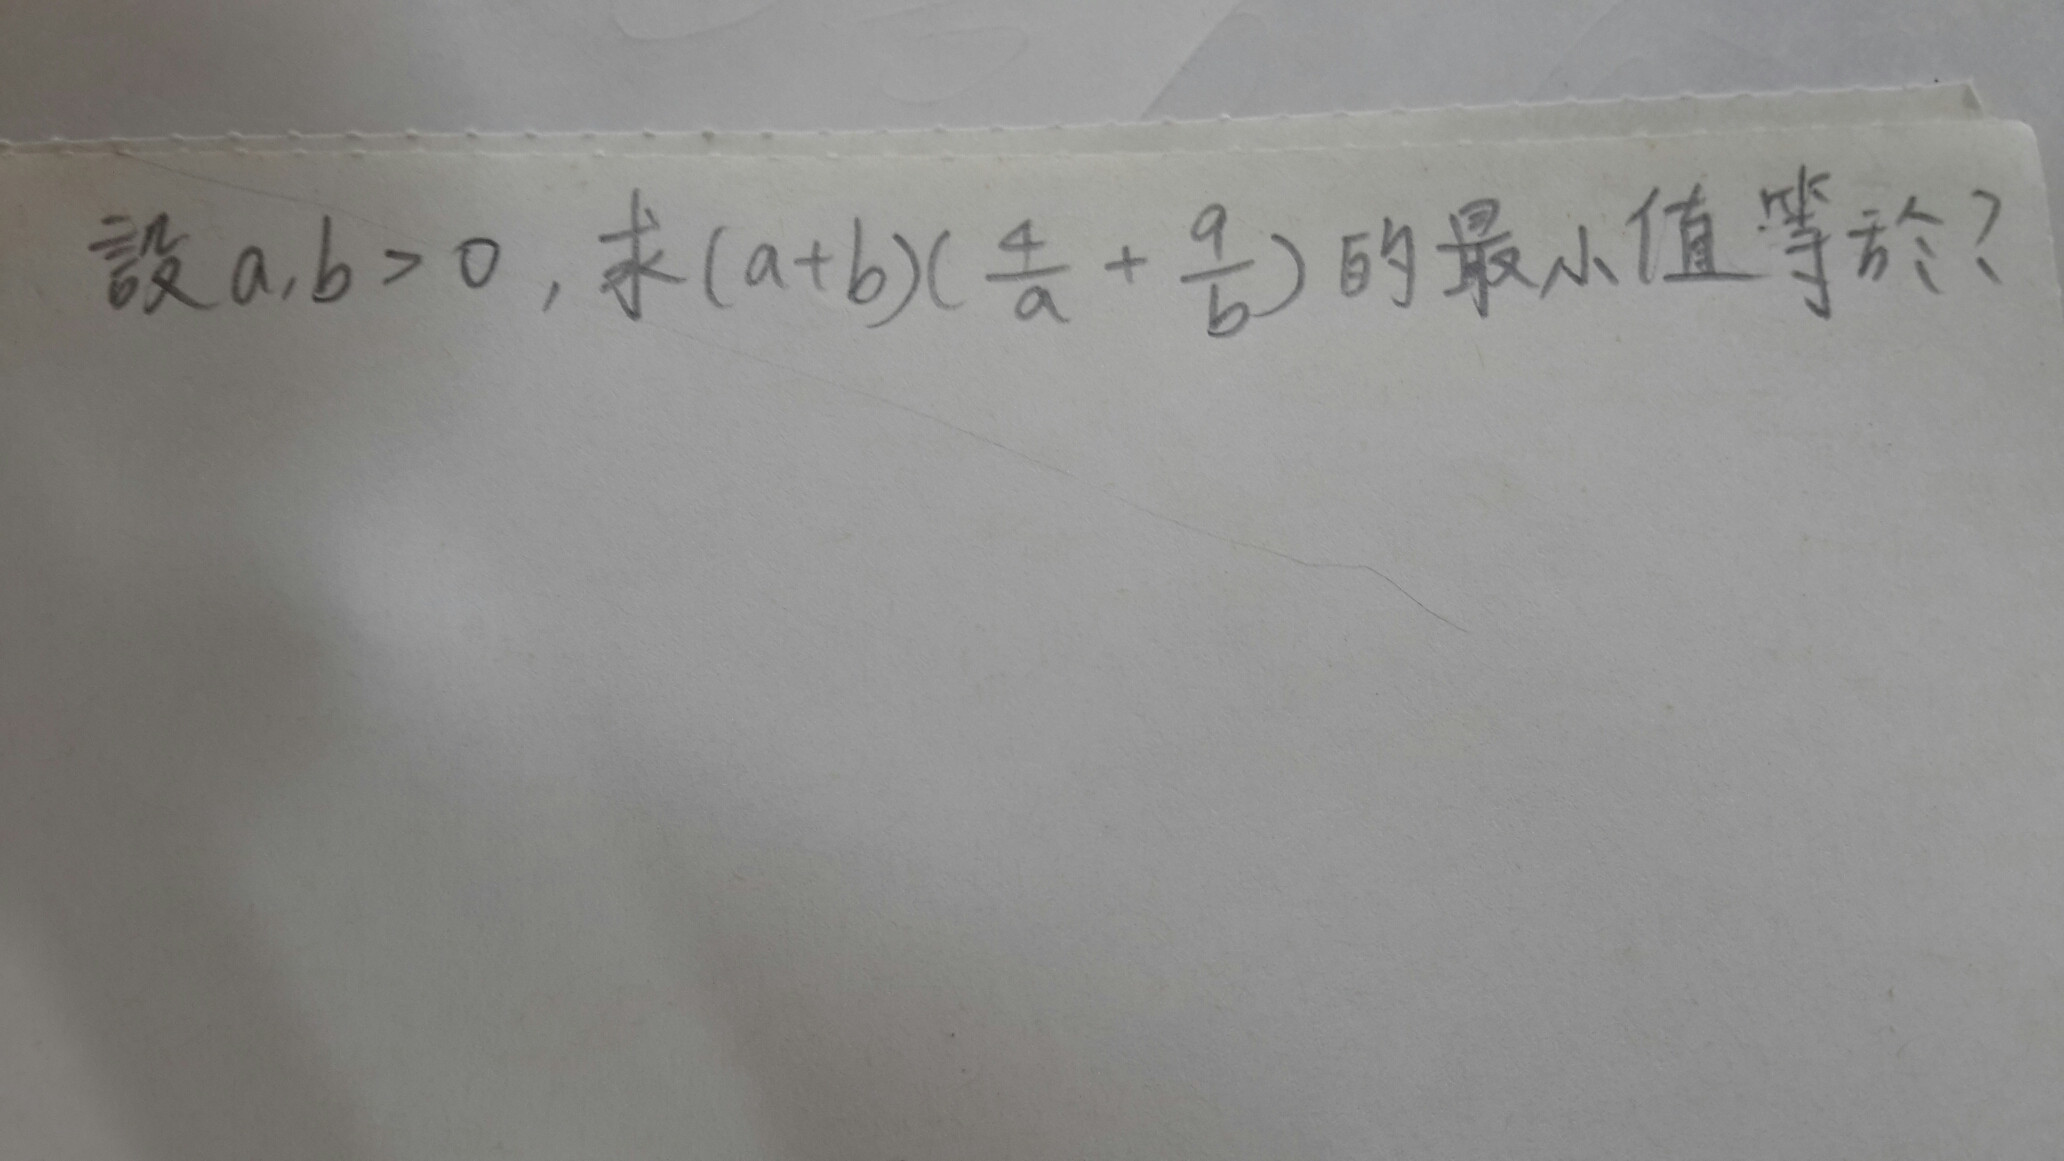 設a,b>0,求(a+b)(4/a+9/b)的最小值等於?